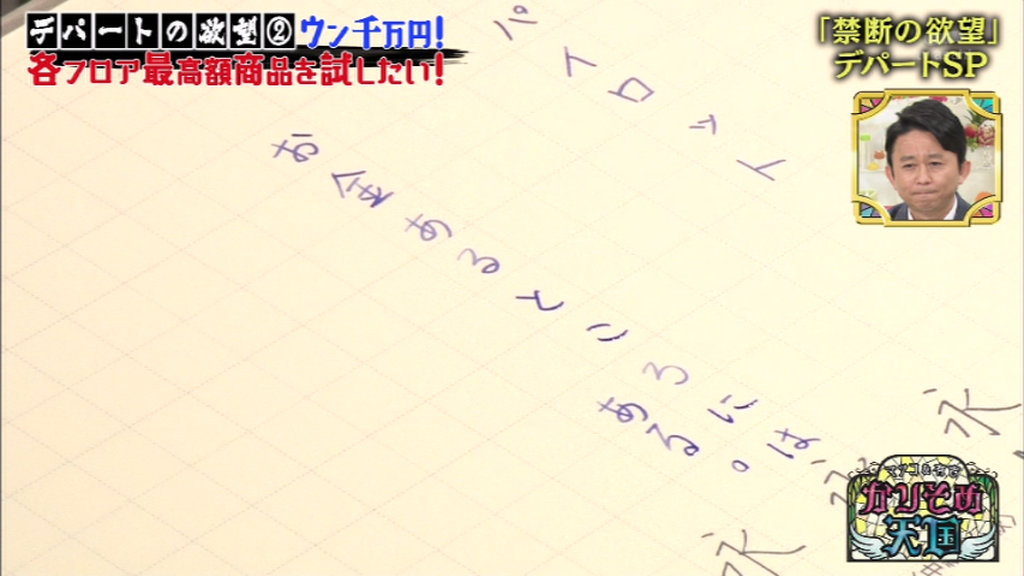 デパートの欲望②ウン千万円!
各フロア最高額商品を試したい!
「禁断の欲望」
デパートSP
パイロット
お金あるところには
ある。
永
永
永
マツコ&有吉
かりそめ
天国